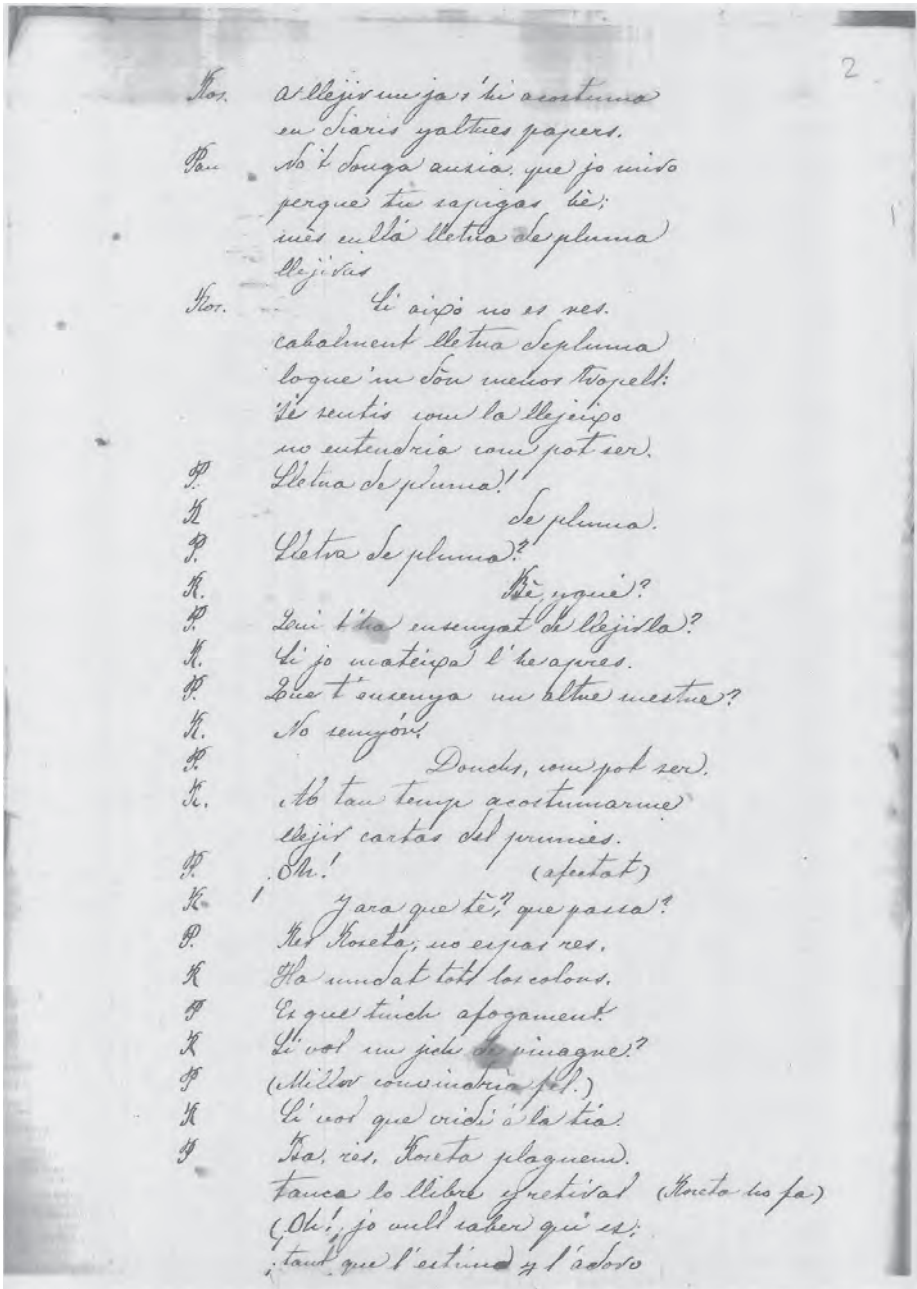 2
Ros. A llejir un ja s'hi acostuma
en diaris y altres papers.
Pau No 't donga ansia, que jo miro
perque tu sapigas bè;
mès enllá lletra de pluma
llejirás
Ros. Si aixó no es res.
cabalment lletra de pluma
lo que 'm dón menos tropell:
Sè sentis com la llejeixo
no entendria com pot ser.
P. Lletra de pluma!
R de pluma.
P. Lletra de pluma?
R. Bè, y qué?
P. Qui t'ha ensenyat de llejirla?
R. Si jo mateixa l'he apres.
P. Que t'ensenya un altre mestre?
R. No senyór.
P. Donchs, com pot ser.
R. Ab tan temp acostumarme
llejir cartas del prumies.
P. Oh! (afectat)
R. Y ara que tè? que passa?
P. Res Roseta; no espas res.
R Ha mudat tots los colors.
P Es que tinch afogament.
R Si vol un jich de vinagre?
P (Millor convindría fel.)
R Si vol que cridi á la tia.
P Ba, res, Roseta pleguem.
tanca lo llibre y retiral (Roseta ho fa)
(Oh!, jo vull saber qui es;
¡tant que l'estimo y l'adoro